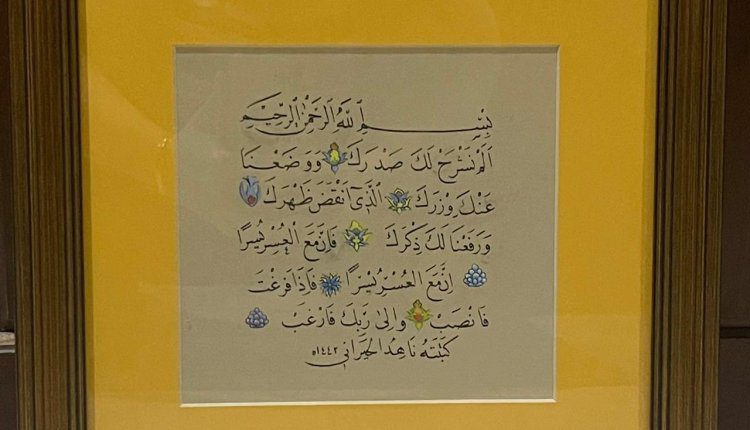 بِسْمِ اللَّهِ الرَّحْمَٰنِ الرَّحِيمِ
أَلَمْ نَشْرَحْ لَكَ صَدْرَكَ وَوَضَعْنَا
عَنْكَ وِزْرَكَ الَّذِي أَنْقَضَ ظَهْرَكَ
وَرَفَعْنَا لَكَ ذِكْرَكَ فَإِنَّ مَعَ الْعُسْرِ يُسْرًا
إِنَّ مَعَ الْعُسْرِ يُسْرًا فَإِذَا فَرَغْتَ
فَانْصَبْ وَإِلَىٰ رَبِّكَ فَارْغَبْ
كتبته ناهد الحيراني ١٤٤٢ه